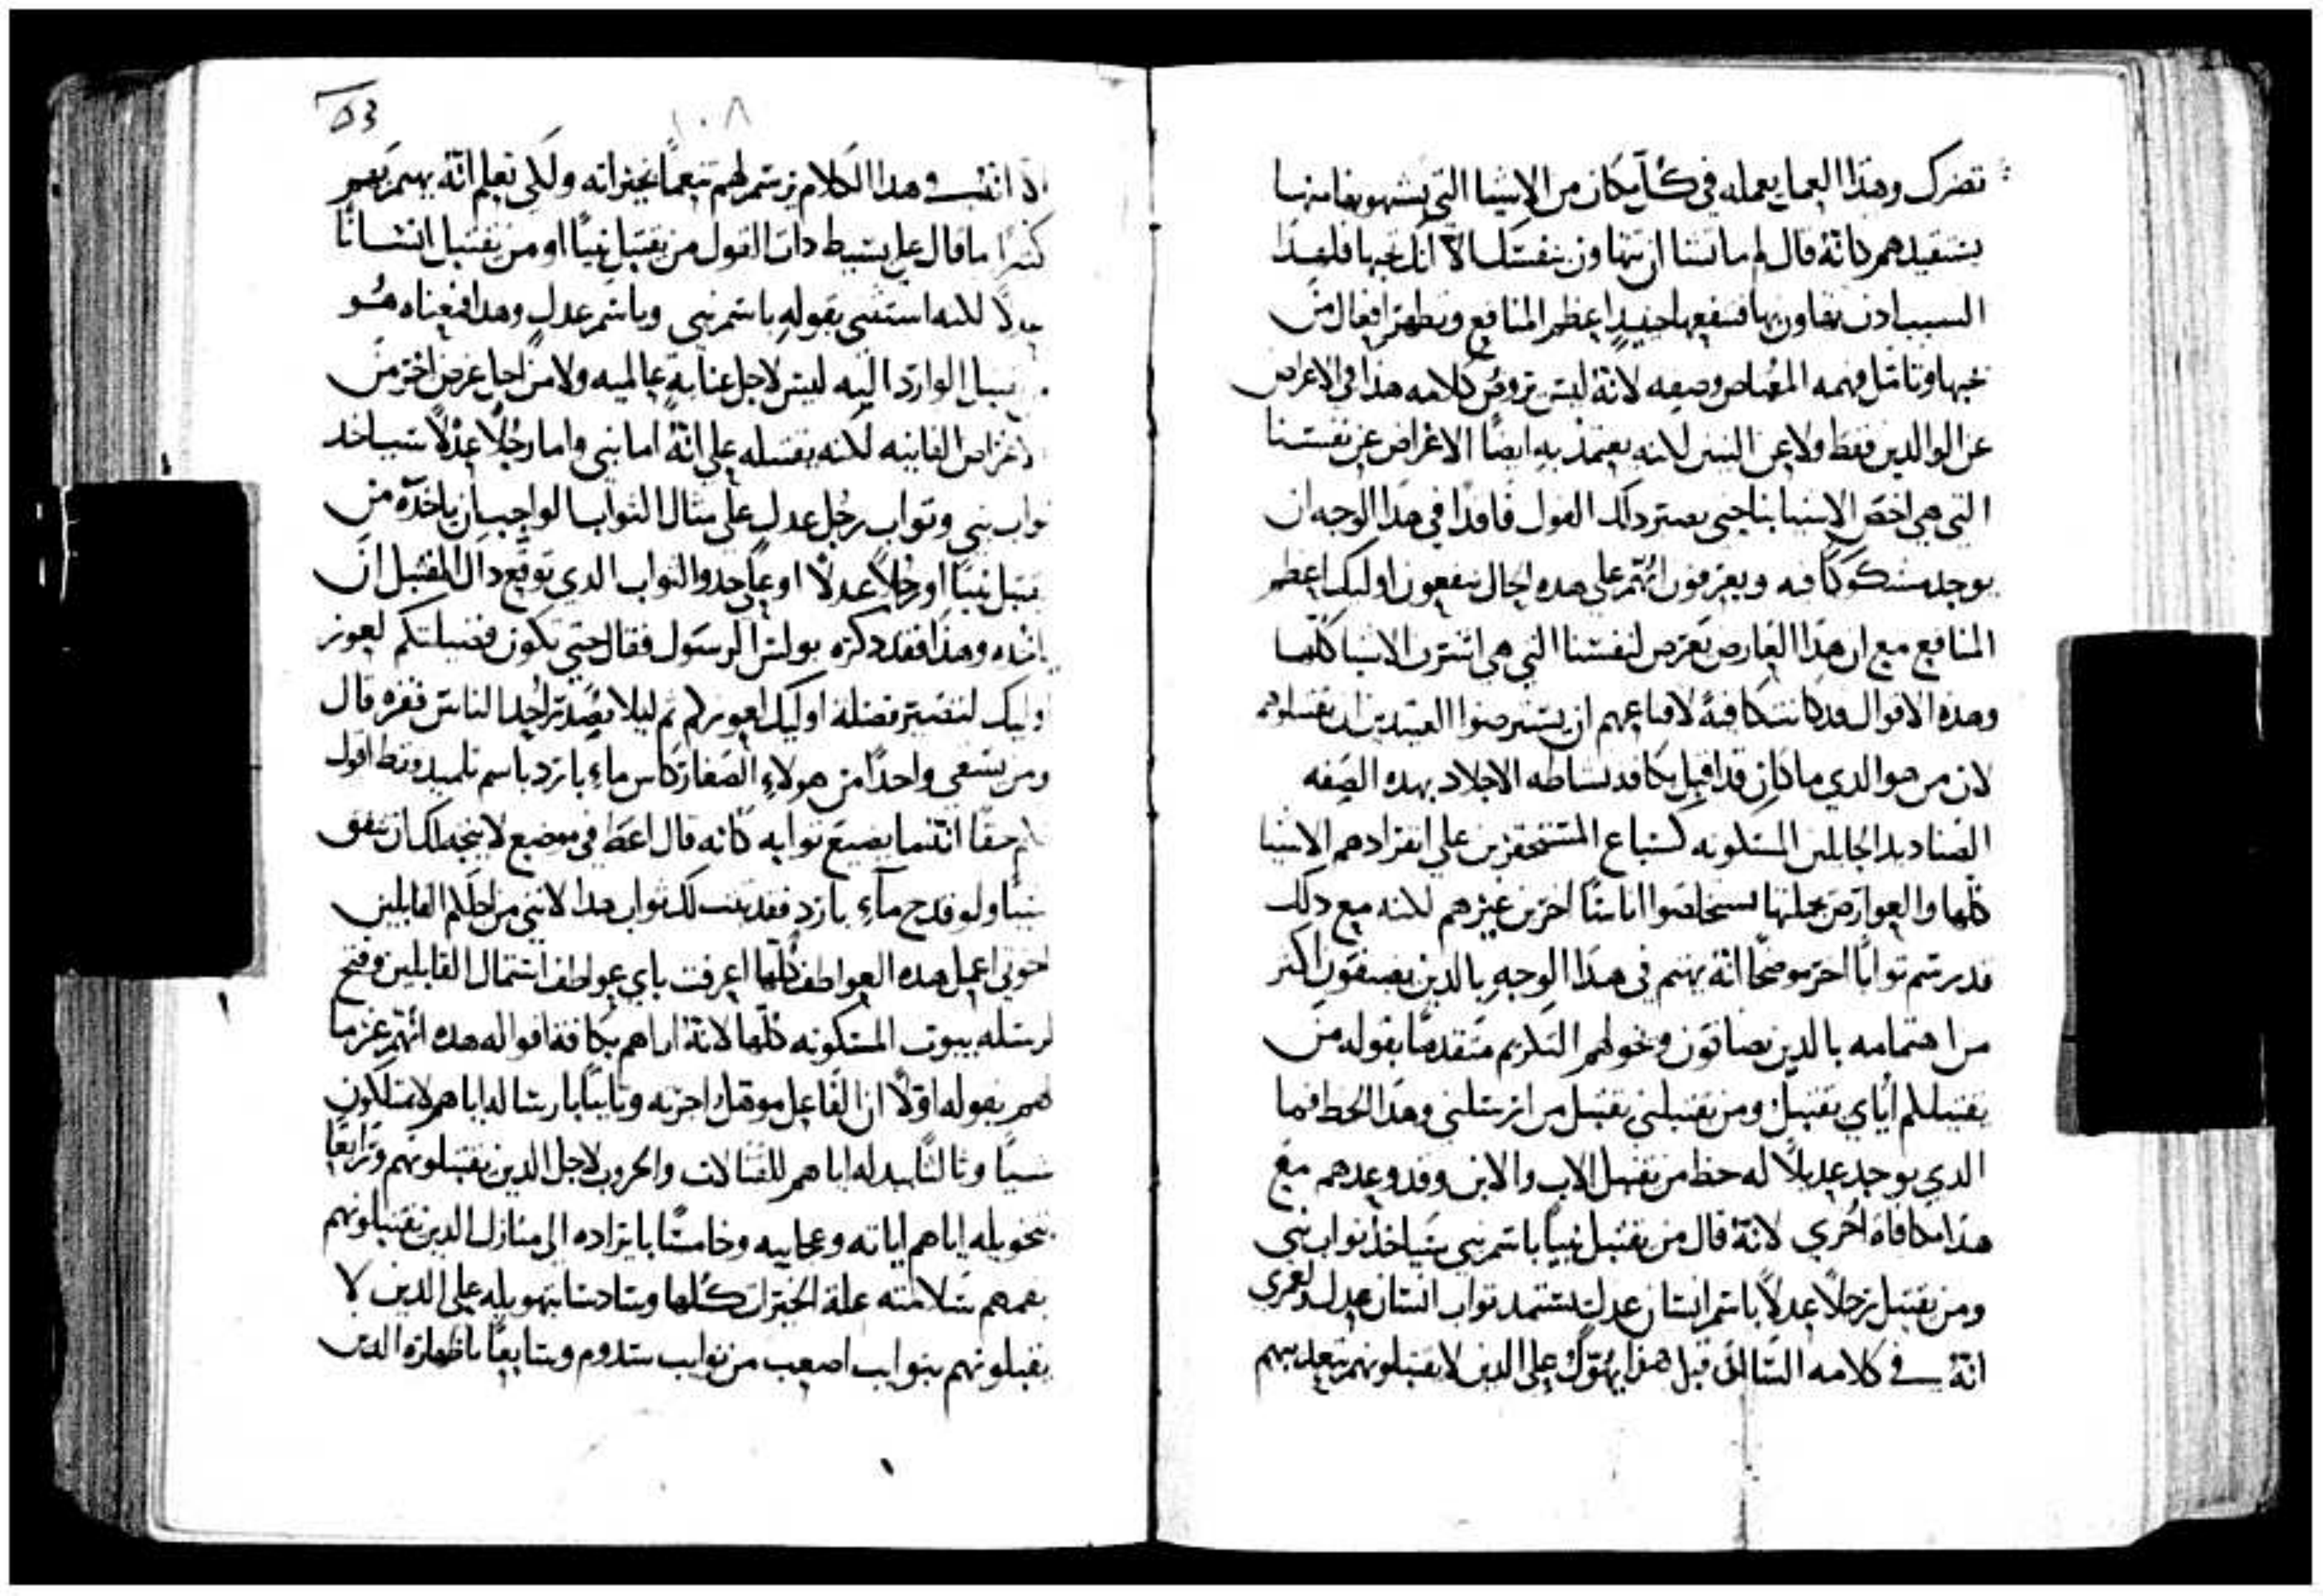 تضرك وهذا العمل يعمله في كل مكان من الاشيا التي يشتهونها منها
يستفيدهم كانه قال لم ما تسنا ان تتهاون بنفسك الا انك تحبها فلهذا
السبب اذن تهاون بها فتنفعها حينيد اعظم المنافع وتظهر افعال من
يحبها وتامل فهمه المعتاص وصفه لانه ليس يروض كلامه هذا في الاعراض
عن الوالدين فقط ولا عن البنين لكنه يعتمد به ايضا الاعراض عن نفسنا
التي هي اخص الاشيا بنا حتى يصير ذلك القول فاقدا في هذا الوجه ان
يوجد مشكوكا فيه ويعرفون انهم على هذه الحال ينفعون اوليك اعظم
المنافع مع ان هذا العارض تعرض لنفسنا التي هي اشرف الاشيا كلها
وهذه الاقوال قد كانت كافية لاقناعهم ان يسترضوا العتيدين ان يقتبلوهم
لان من هو الذي ما كان قد اقتبل بكافة نشاطه الاجلاد بهذه الصفه
الصناديد الجايلين المسكونه كسباع المستحقرين على انفرادهم الاشيا
كلها والعوارض بجملتها ليستخلصوا اناسا اخرين غيرهم لكنه مع ذلك
قد رسم ثوابا اخر موضحا انه يهتم في هذا الوجه بالذين يضيفون اكثر
من اهتمامه بالذين يضافون وخولهم التكريم متقدما بقوله من
يقتبلكم اياي يقتبل ومن يقتبلني يقتبل من ارسلني وهذا الحظ فما
الذي يوجد عديلا له حظ من يقتبل الاب والابن وقد وعدهم مع
هذا مكافاه اخرى لانه قال من يقتبل نبيا باسم نبي سياخذ ثواب نبي
ومن يقتبل رجلا عدلا باسم انسان عدل يستمد ثواب انسان عدل ولعمري
انه في كلامه السالف قبل هذا يهول على الذين لا يقتبلونهم بتعذيبهم
53
١٠٨
وفي هذا الكلام يرسم لهم تنعما بخيراته ولكي تعلم انه يهتم بهم
كثيرا ما قال على بسيط ذات القول من يقتبل نبيا او من يقتبل انسانا
عدلا لكنه استثنى بقوله باسم نبي وباسم عدل وهذا فمعناه هو
يقبل الوارد اليه ليس لاجل عناية عالميه ولا من اجل غرض اخر من
الاغراض الفانيه لكنه يقتبله على انه اما نبي واما رجلا عدلا سياخذ
ثواب نبي وثواب رجل عدل على مثال الثواب الواجب ان ياخذه من
يقتبل نبيا او رجلا عدلا او على حذو الثواب الذي توقع ذاك المقتبل ان
ياخذه وهذا فقد ذكره بولس الرسول فقال حتى تكون فضيلتكم لعوز
اوليك لتصير فضلة اوليك لعوزكم ثم ليلا يصد احد الناس فقره قال
ومن يسقي واحدا من هولاء الصغار كاس ماء بارد باسم تلميد فقط اقول
لكم حقا انه ما يضيع ثوابه كانه قال اعط في موضع لا يتجه لك ان تنفق
شيا ولو قدح ماء بارد فقد ثبت لك ثواب هذا لانني من اجلكم القابلين
اخوتي اعمل هذه العواطف كلها اعرفت باي عواطف استمال القابلين وفتح
لرسله بيوت المسكونه كلها لانه اراهم بكافة اقواله هذه انهم غرما
لهم بقوله اولا ان الفاعل موهل اجرته وثانيا بارساله اياهم لا يمتلكون
شيا وثالثا ببدله اياهم للقتالات والحروب لاجل الذين يقتبلونهم ورابعا
بتخويله اياهم اياته وعجايبه وخامسا بايراده الى منازل الذين يقتبلونهم
بفمهم سلامته علة الخيرات كلها وسادسا بتهويله على الذين لا
يقبلونهم بنوايب اصعب من نوايب سدوم وسابعا باظهاره الذين